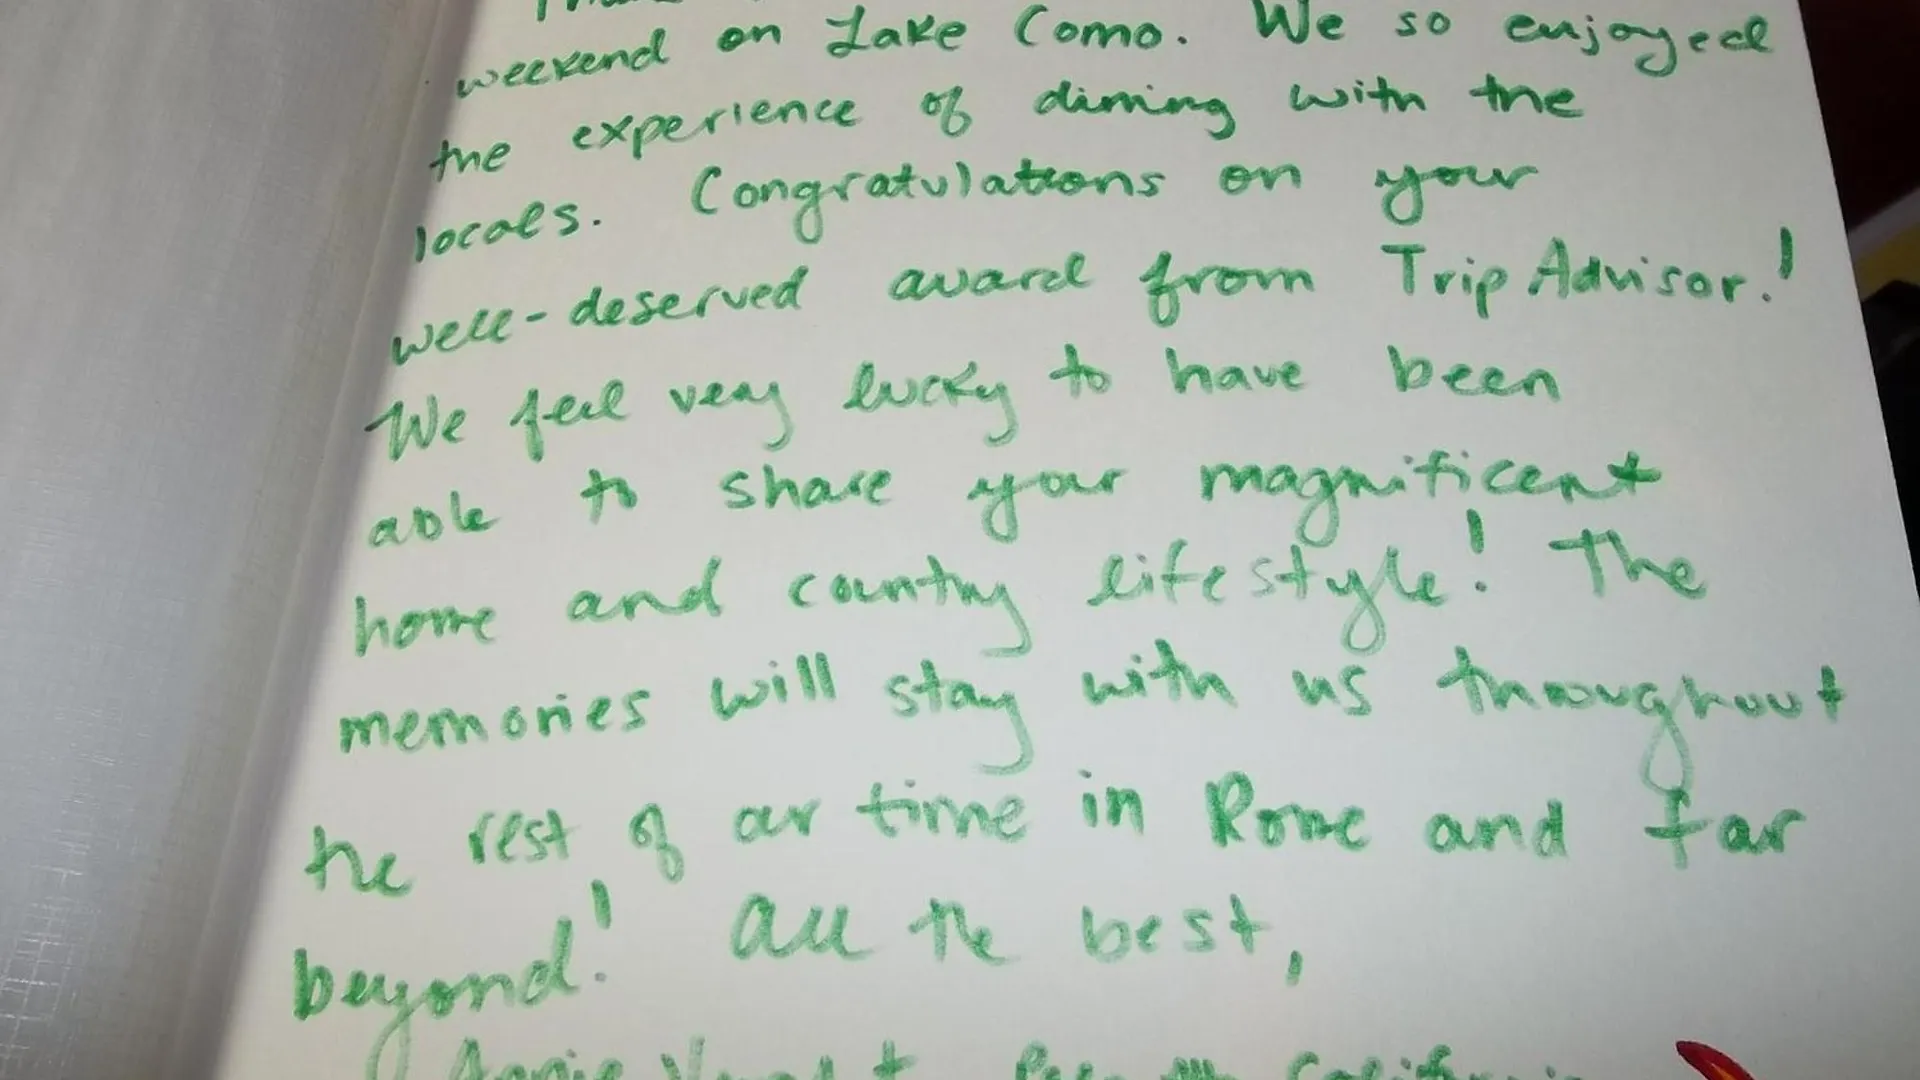 weekend on Lake Como. We so enjoyed
the experience of dining with the
locals. Congratulations on your
well-deserved award from TripAdvisor!
We feel very lucky to have been
able to share your magnificent
home and country lifestyle! The
memories will stay with us throughout
the rest of our time in Rome and far
beyond! All the best,
California